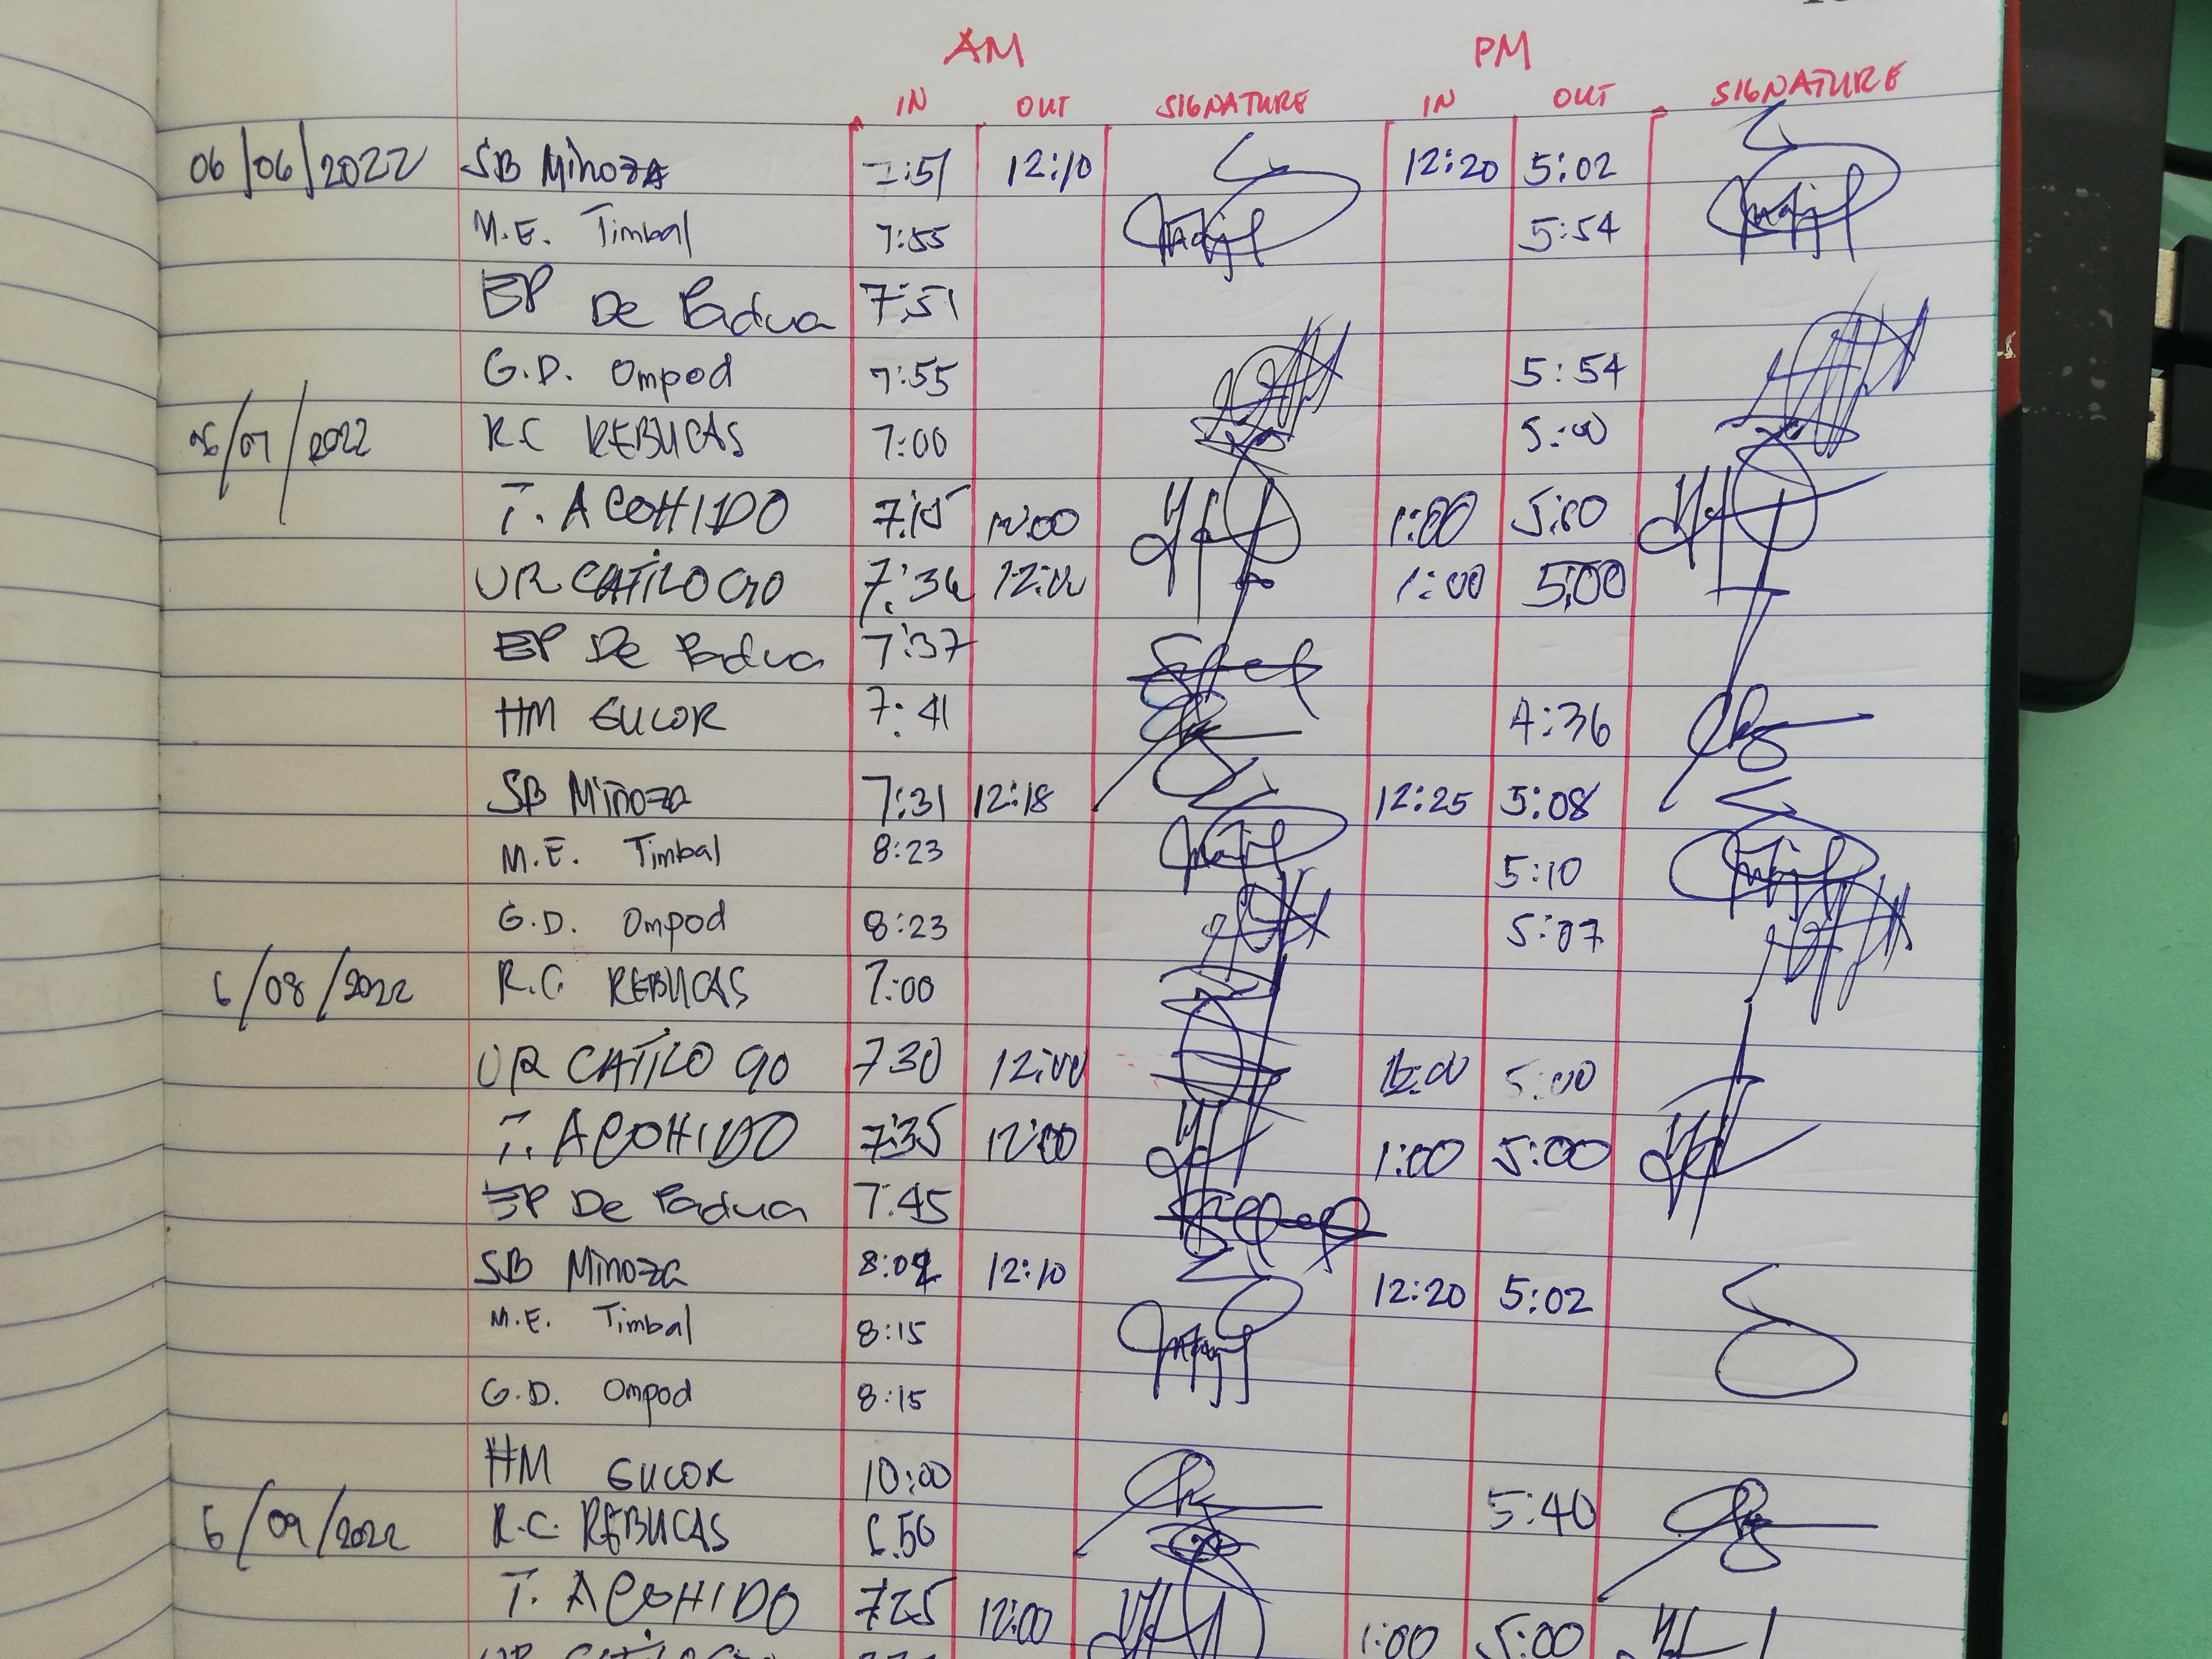 AM PM
IN OUT SIGNATURE IN OUT SIGNATURE
06/06/2022 SB Miñoza 7:51 12:10 12:20 5:02
M.E. Timbal 7:55 5:54
EP De Padua 7:51
G.D. Ompod 7:55 5:54
06/07/2022 R.C REBUCAS 7:00 5:00
T. ACOHIDO 7:15 12:00 1:00 5:00
UR CATILOGO 7:36 12:00 1:00 5:00
EP De Padua 7:37
HM GUCOR 7:41 4:36
SB Miñoza 7:31 12:18 12:25 5:08
M.E. Timbal 8:23 5:10
G.D. Ompod 8:23 5:07
6/08/2022 R.C. REBUCAS 7:00
UR CATILOGO 730 12:00 5:00
T. ACOHIDO 7:35 12:00 1:00 5:00
EP De Padua 7:45
SB Miñoza 12:10 12:20 5:02
M.E. Timbal 8:15
G.D. Ompod 8:15
HM GUCOR 10:00 5:40
6/09/2022 R.C. REBUCAS 6:50
T. ACOHIDO 7:25 12:00 1:00 5:00